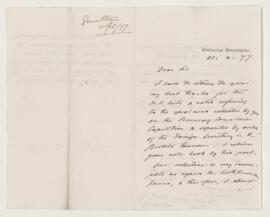 Zoological Department
Dear Sir
I have to return to you
my best thanks for the
notes referring
to the specimens collected by you
on the Boundary Commission
Expedition, & deposited by order
of the Foreign Secretary in the
British Museum. I return
your note-book by this post.
Our collection is very incom-
plete as regards the North American
Fauna, & therefore, I